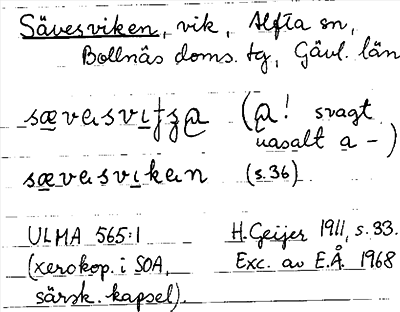 Sävesviken, vik, Alfta sn,
Bollnäs doms. tg, Gävl. län
(a! svagt
nasalt a -)
(s. 36)
ULMA 565:1 H. Geijer 1911, s. 33.
(xerokop. i SOA, Exc. av E.Å. 1968
särsk. kapsel).